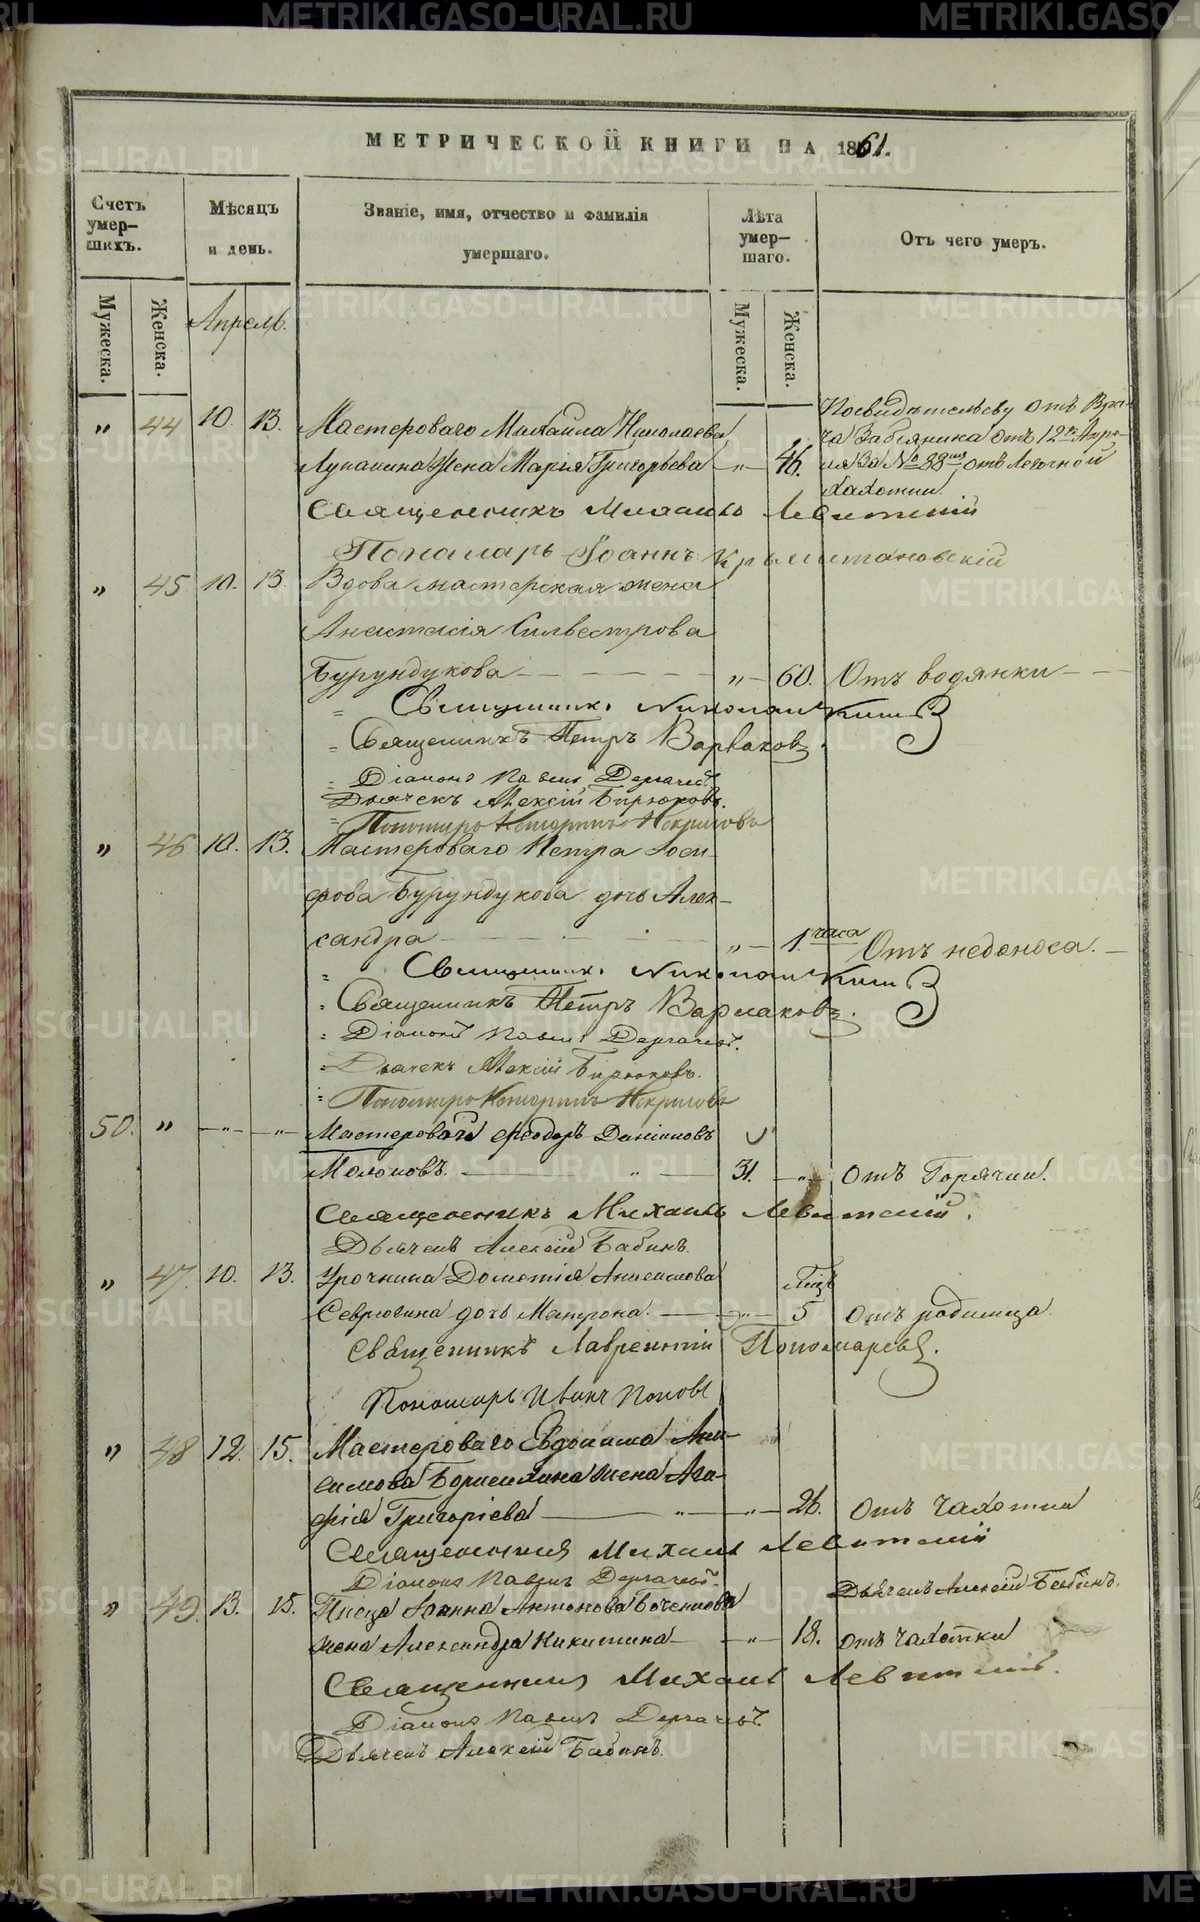 МЕТРИЧЕСКОЙ КНИГИ НА 1861.
Счетъ умер-шихъ.
Мѣсяцъ и день.
Званіе, имя, отчество и фамилія умершаго.
Лѣта умер-шаго.
Отъ чего умеръ.
Мужеска.
Женска.
Апрель.
Мужеска.
Женска.
„ 44 10. 13. Мастероваго Михаила Николаева
жена Марья Григорьева „ 46.
По свидѣтельсву отъ Вра-
ча отъ 12го Апре-
ля За № 88мъ, отъ легочной
чахотки.
Священникъ Михаилъ Левитскій
Пономарь Іоаннъ
„ 45 10. 13. Вдова мастерская жена
Анастасія Сильвестрова
Бурундукова „ 60. Отъ водянки
Священникъ Николай
Священникъ Петръ Варваковъ.
Діаконъ Павелъ Дергачевъ
Дьячекъ Алексій Бирюковъ.
Пономарь Некрасовъ
„ 46 10. 13. Мастероваго Петра Іоси-
фова Бурундукова дочь Алек-
сандра „ 1. часа Отъ недоноса.
Священникъ Николай
Священникъ Петръ Варваковъ.
Діаконъ Павелъ Дергачевъ.
Дьячекъ Алексій Бирюковъ.
Пономарь Некрасовъ
50. „ „ „ Мастеровой Ѳеодоръ Даніиловъ
Молоковъ. „ 31. „ отъ Горячки.
Священникъ Михаилъ Левитскій.
Дьячекъ Алексій Бабинъ.
„ 47. 10. 13. Урочника Дометія Анисимова
Севрюгина дочь Матрона. „ 5 отъ родимца.
Священникъ Лаврентій Пономаревъ.
Пономарь Иванъ Поповъ
„ 48 12. 15. Мастероваго Евдокима Ани-
симова жена Ага-
фія Григоріева „ „ 26. отъ чахотки
Священникъ Михаилъ Левитскій
Діаконъ Павелъ Дергачевъ.
Дьячекъ Алексій Бабинъ.
„ 49. 13. 15. Писца Іоанна Антонова
жена Александра Никитина „ 18. отъ чахотки
Священникъ Михаилъ Левитскій.
Діаконъ Павелъ Дергачевъ.
Дьячекъ Алексій Бабинъ.
METRIKI.GASO-URAL.RU